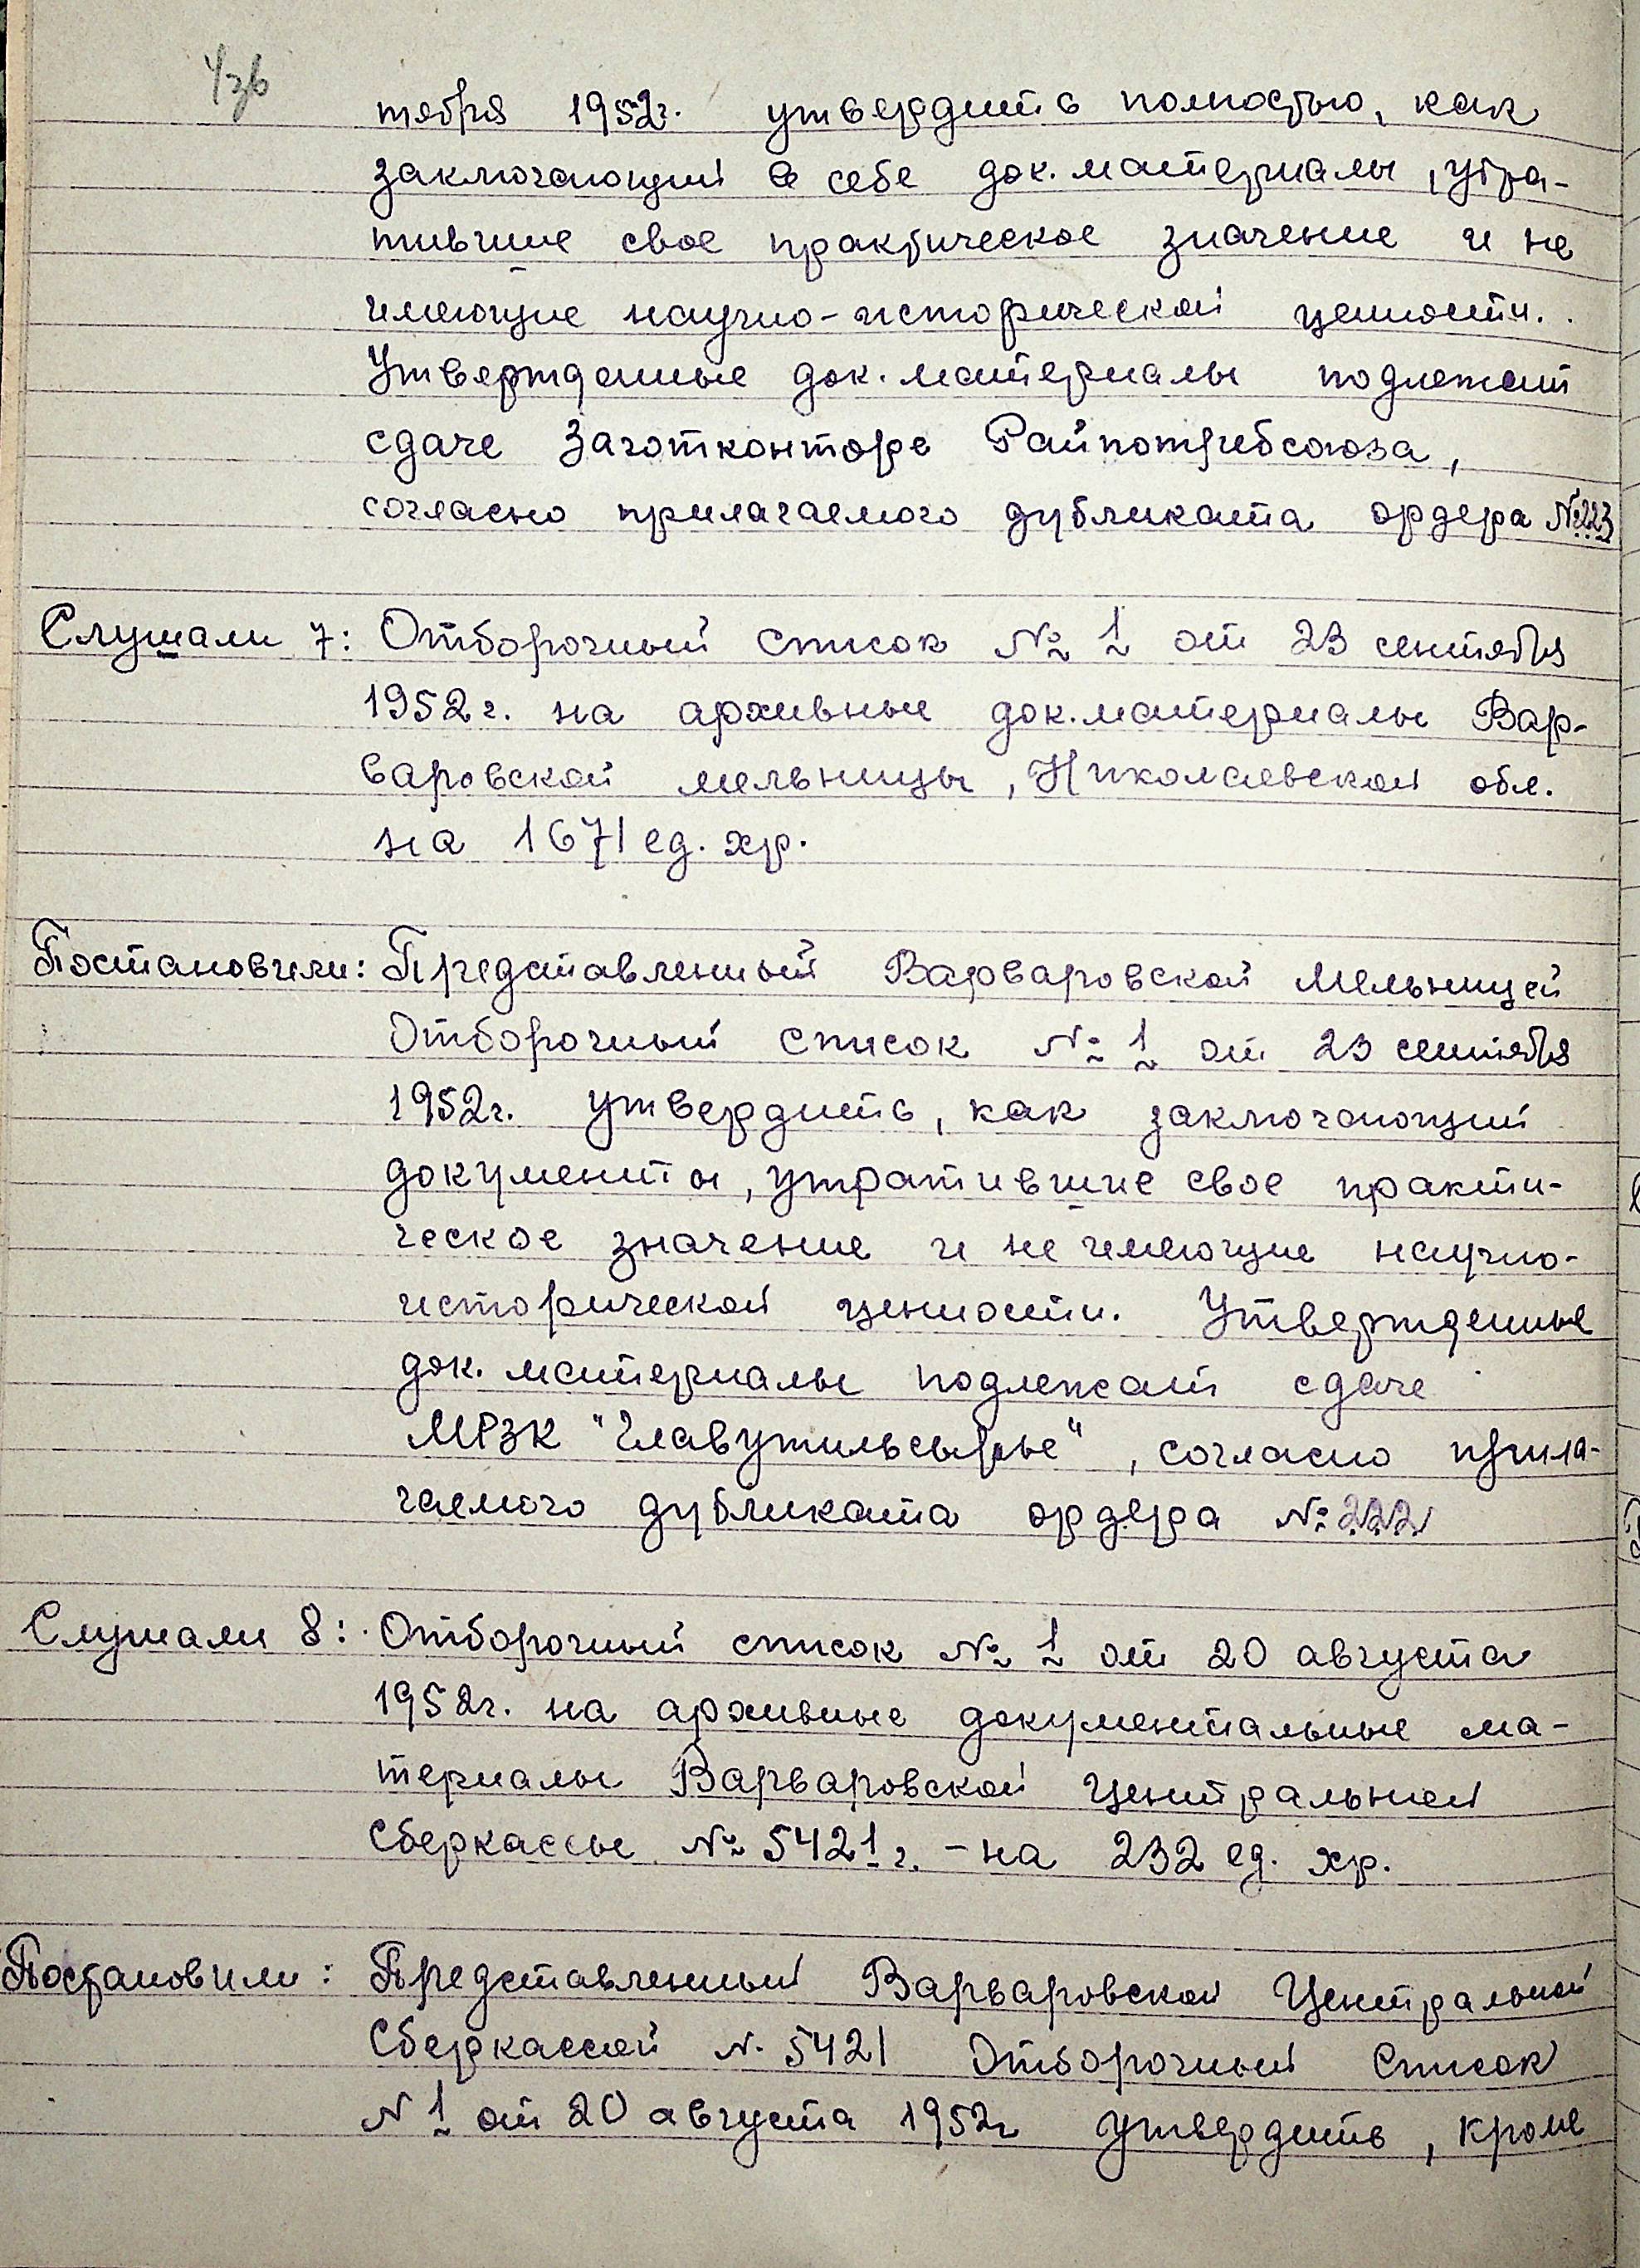 тября 1952г. утвердить полностью, как
заключающий в себе док. материалы, утра-
тившие свое практическое значение и не
имеющие научно-исторической ценности.
Утвержденные док. материалы подлежат
сдаче Заготконторе Райпотребсоюза,
согласно прилагаемого дубликата ордера №223
Слушали 7: Отборочный список № 1 от 23 сентября
1952 г. на архивные док. материалы Вар-
варовской мельницы, Николаевской обл.
на 1671 ед. хр.
Постановили: Представленный Варваровской мельницей
Отборочный список № 1 от 23 сентября
1952г. утвердить, как заключающий
документы, утратившие свое практи-
ческое значение и не имеющие научно-
исторической ценности. Утвержденные
док. материалы подлежат сдаче
МРЗК "Главутильсырье", согласно прила-
гаемого дубликата ордера № 222
Слушали 8: Отборочный список № 1 от 20 августа
1952г. на архивные документальные ма-
териалы Варваровской Центральной
Сберкассы № 5421 г. - на 232 ед. хр.
Постановили: Представленный Варваровской Центральной
Сберкассой №. 5421 Отборочный Список
№ 1 от 20 августа 1952г утвердить, кроме